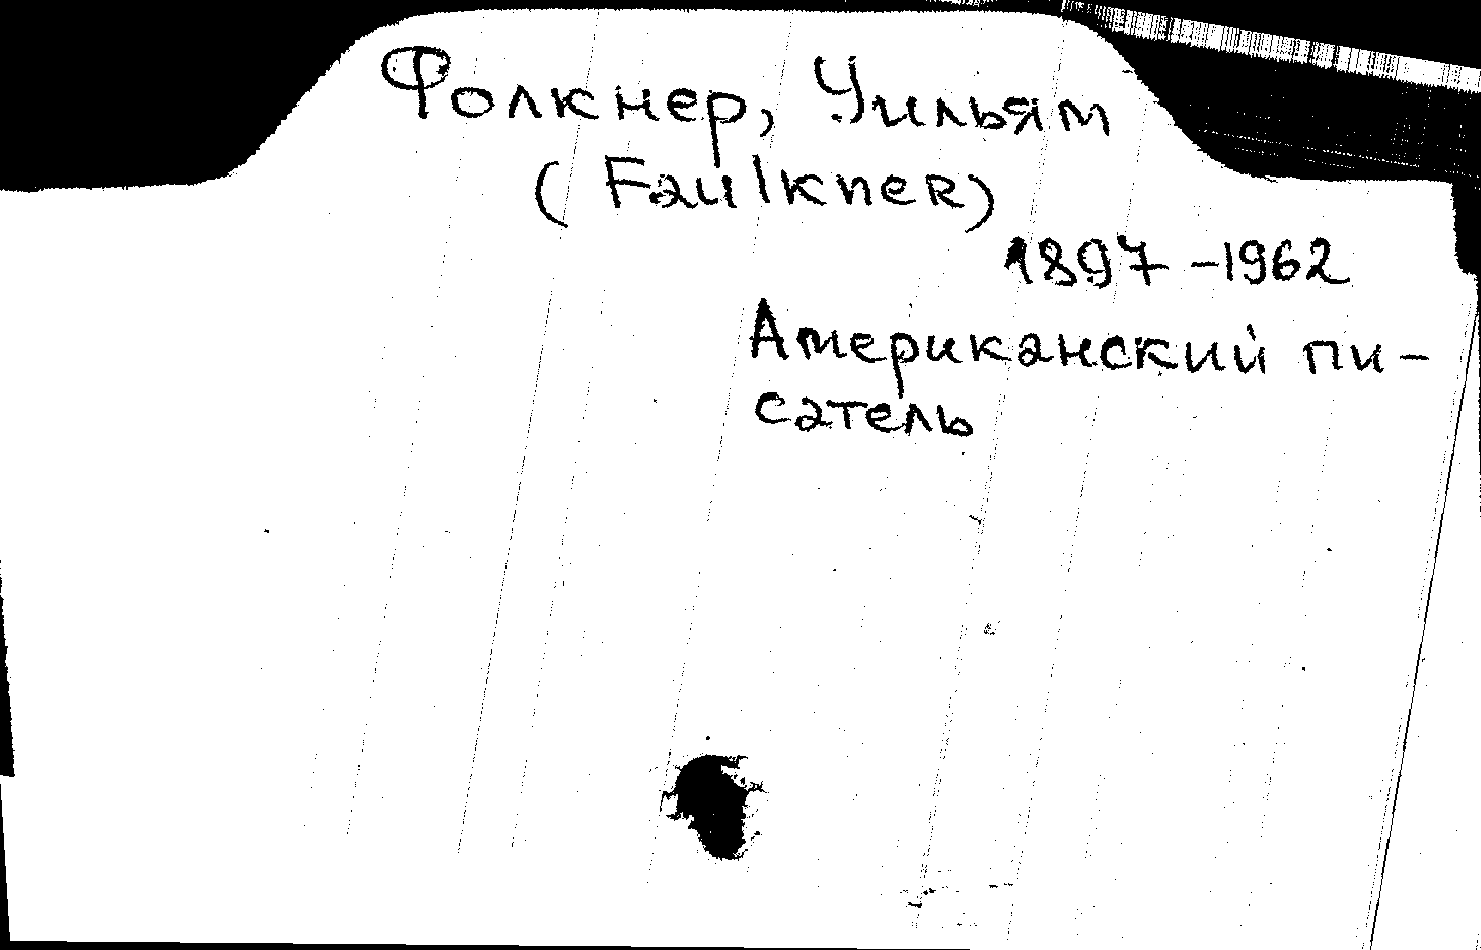 Фолкнер, Уильям
(Faulkner)
1897-1962
Американский пи-
сатель